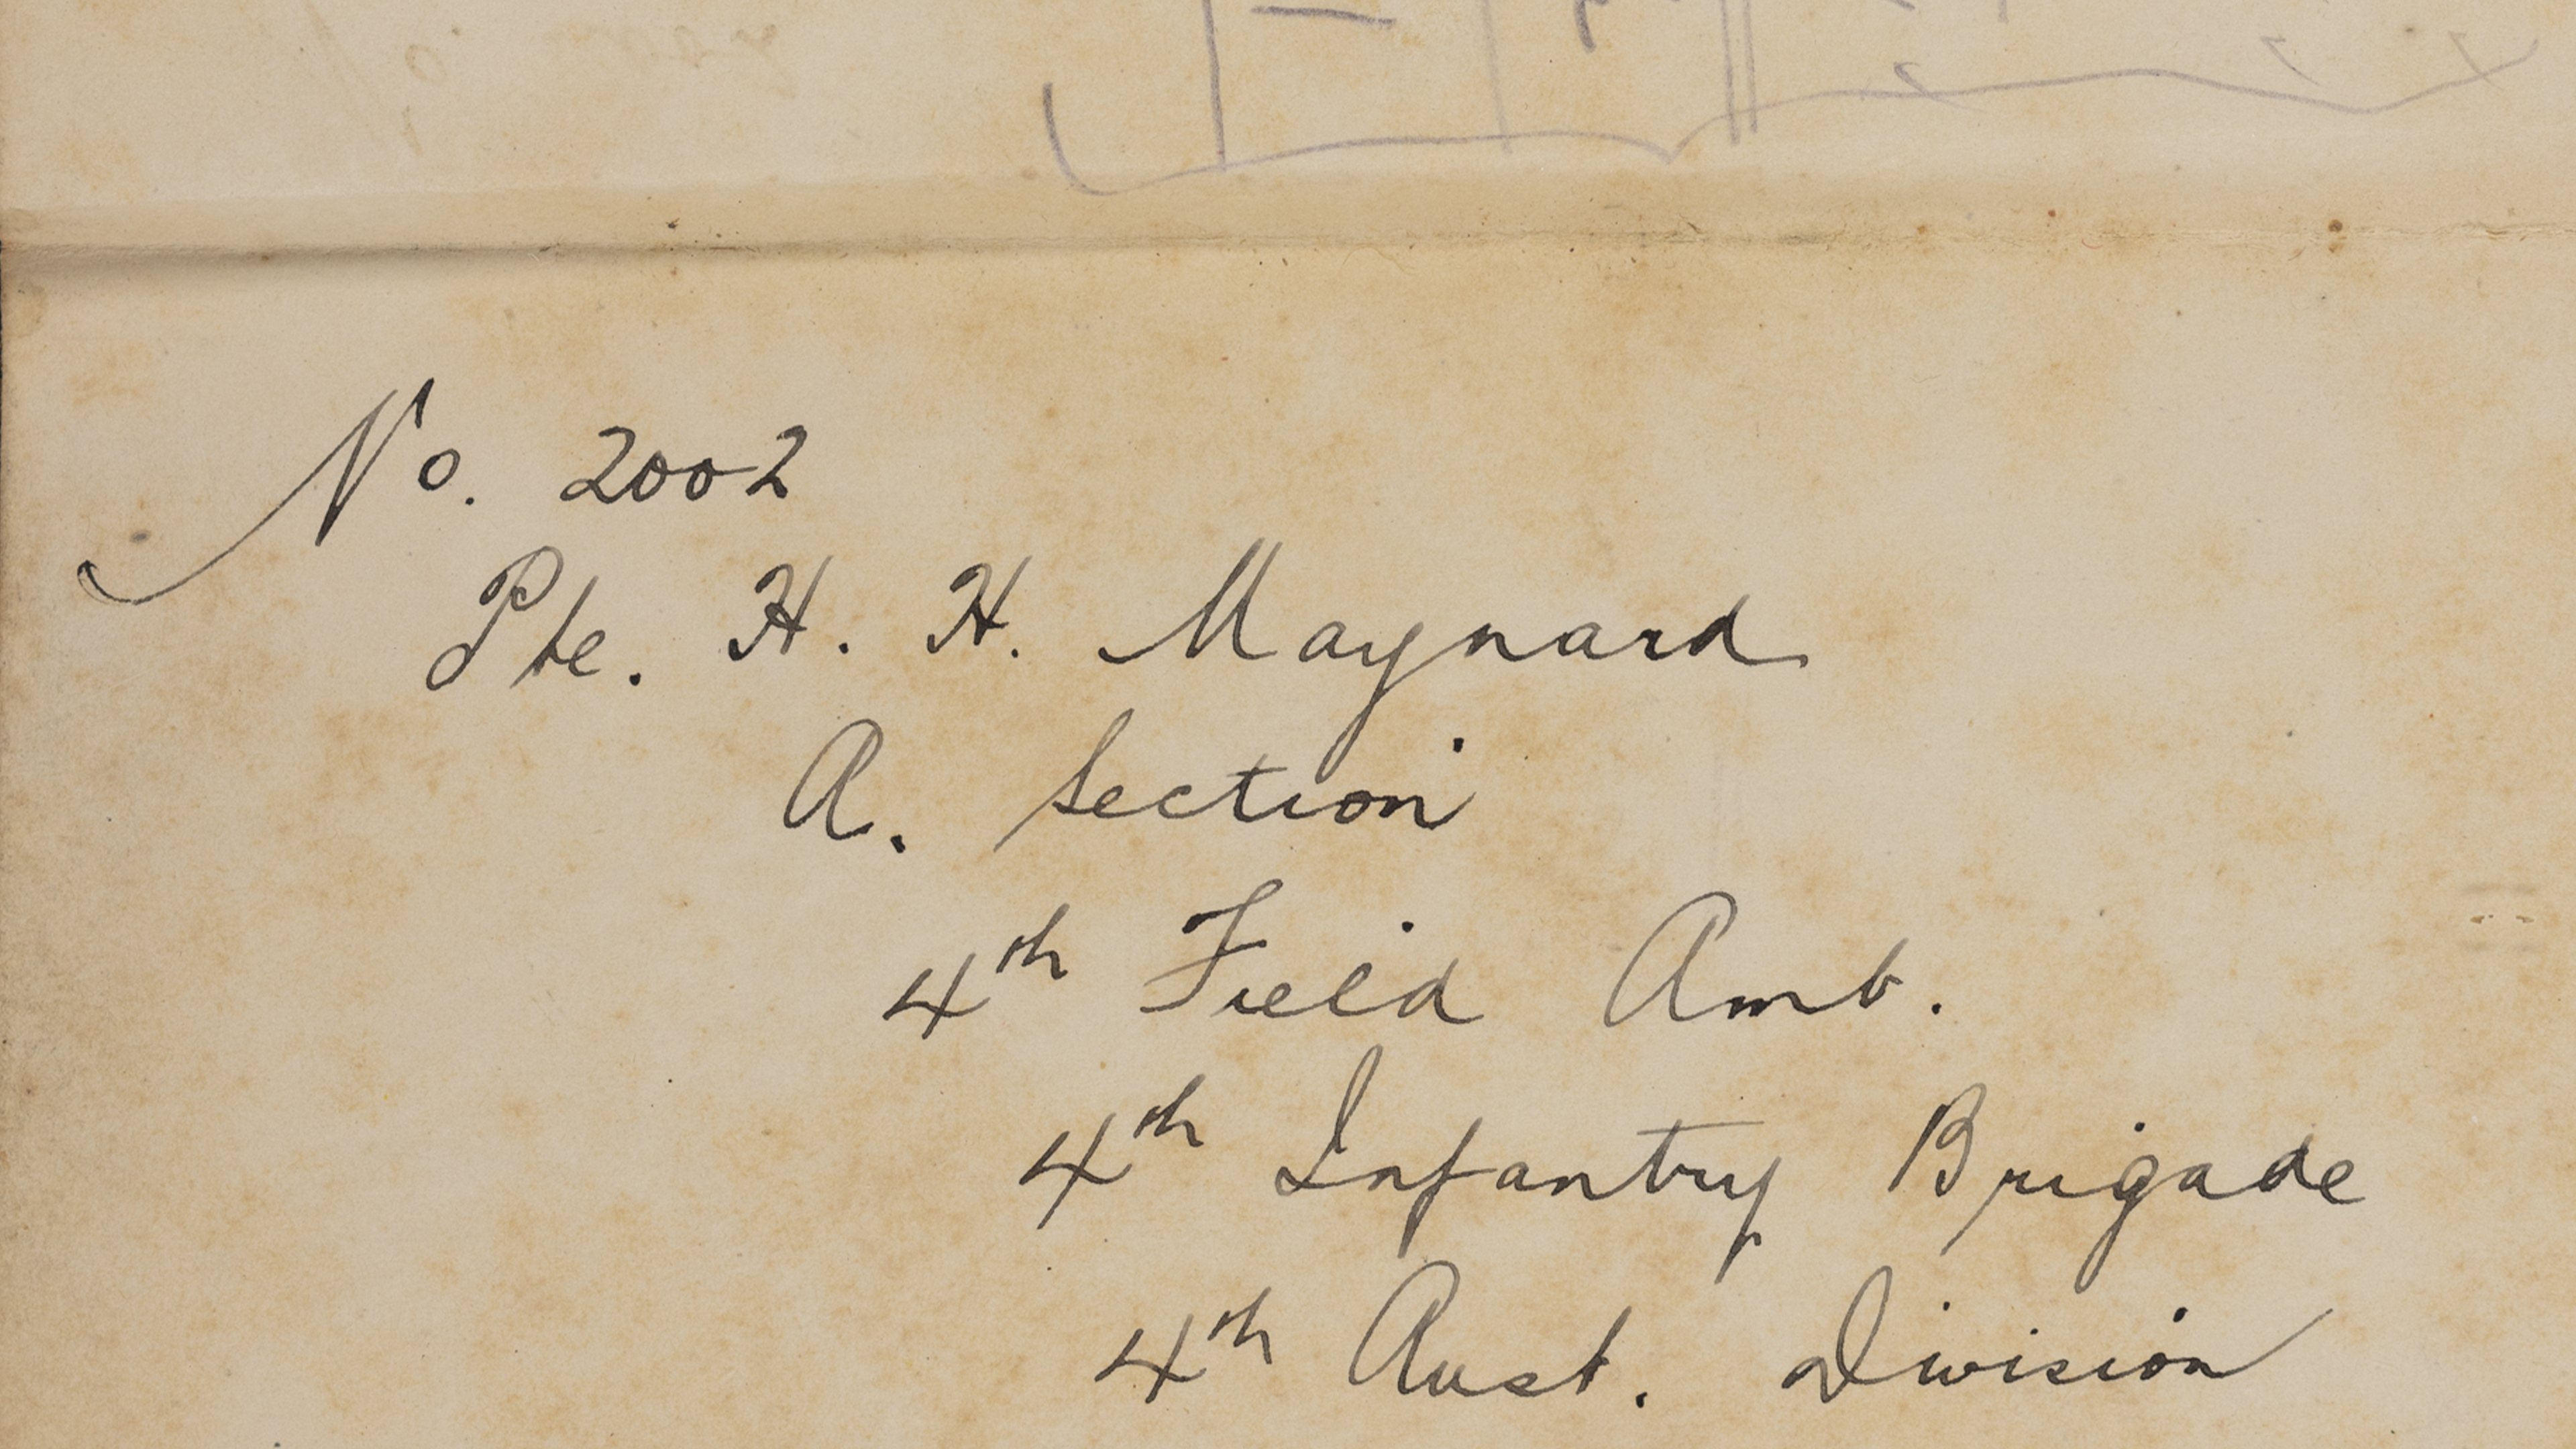 No. 2002
Pte. H. H. Maynard
A. Section
4th Field Amb.
4th Infantry Brigade
4th Aust. Division